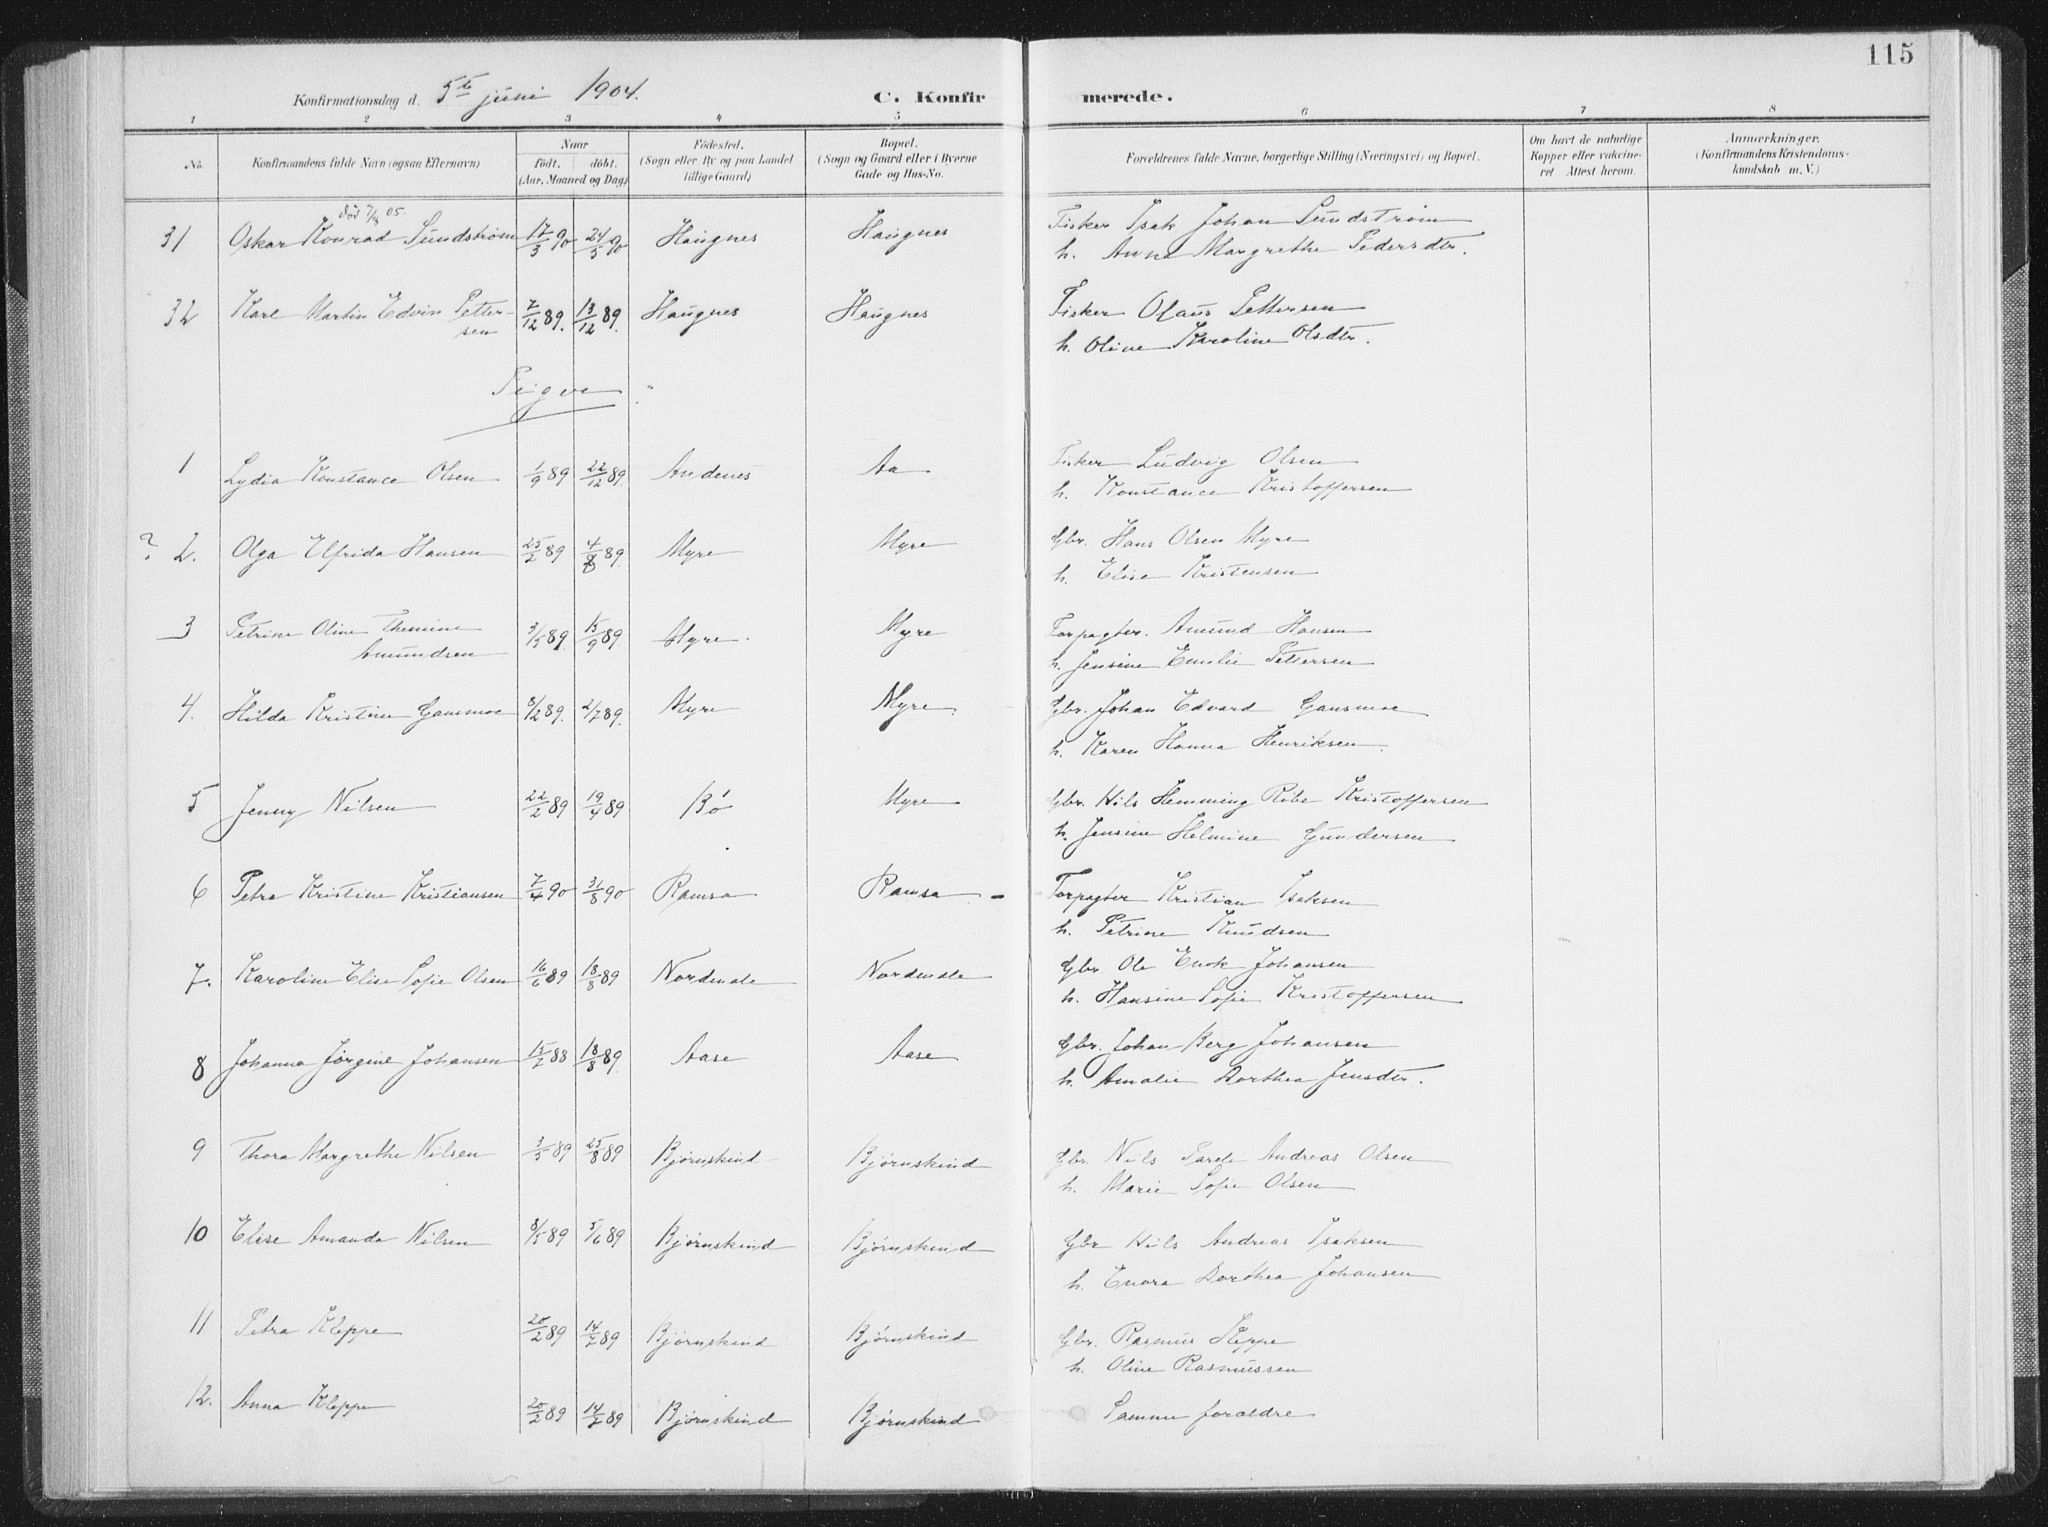 115
Konfirmationsdag d. 5te juni 1904.
C. Konfirmerede.
1 2 3 4 5 6 7 8
No. Konfirmandens fulde Navn (ogsaa Efternavn) Naar født. døbt. (Aar, Maaned og Dag) Fødested. (Sogn eller By og paa Landet tillige Gaard) Bopæl. (Sogn og Gaard eller i Byerne Gade og Hus-No. Forældrenes fulde Navne, borgerlige Stilling (Næringsvei) og Bopæl. Om havt de naturlige Kopper eller vaccineret Attest herom. Anmærkninger. (Konfirmandens Kristendomskundskab m. V.)
død 7/8 05.
31 Oskar Konrad Sundstrøm 17/3 90 24/5 90 Haugnes Haugnes Fisker Isak Johan Sundstrøm
h. Anna Margrethe Pedersdtr.
32 Karl Martin Edvin Pettersen 7/12 89. 13/12 89. Haugnes Haugnes Fisker Olaus Pettersen
h. Oline Karoline Olsdtr.
Piger
1 Lydia Konstance Olsen 1/9 89 22/12 89 Andenes Aa Fisker Ludvig Olsen
h. Konstance Kristoffersen
? 2. Olga Elfrida Hansen 25/2 89 Myre Myre Gbr. Hans Olsen Myre
h. Elise Kristensen
3 Petrine Oline Themine Amundsen 3/5 89. 15/9 89. Myre. Myre Forpagter. Amund Hansen
h. Jensine Emilie Pettersen
4. Hilda Kristine Gansmoe 8/12 89. 2/7 89. Myre Myre Gbr. Johan Edvard Gansmoe
h. Karen Hanna Henriksen.
5 Jenny Nilsen 22/2 89 19/4 89 Bø Myre Gbr. Nils Hemming Ribe Kristoffersen
h. Jensine Helmine Gundersen
6 Petra Kristine Kristiansen 7/4 90 31/8 90 Ramsa Ramsa - Forpagter Kristian Isaksen
h. Petrine Knudsen
7. Karoline Elise Sofie Olsen 16/6 89 18/8 89 Nordmele Nordmele Gbr Ole Enok Johansen
h. Hansine Sofie Kristoffersen
8 Johanna Jørgine Johansen 15/7 88 18/8 89. Aase Aase Gbr. Johan Berg Johansen
h. Amalie Dorthea Jensdtr.
9 Thora Margrethe Nilsen 3/5 89 25/8 89 Bjørnskind Bjørnskind Gbr. Nils Andreas Olsen
h. Marie Sofie Olsen
10 Elise Amanda Nilsen 8/5 89 5/6 89 Bjørnskind Bjørnskind Gbr Nils Andreas Isaksen
h. Enora Dorthea Johansen
11 Petra Kleppe 20/2 89 14/7 89 Bjørnskind Bjørnskind Gbr. Rasmus Kleppe
h. Oline Rasmussen
12. Anna Kleppe 20/2 89 14/7 89 Bjørnskind Bjørnskind Samme foraldre